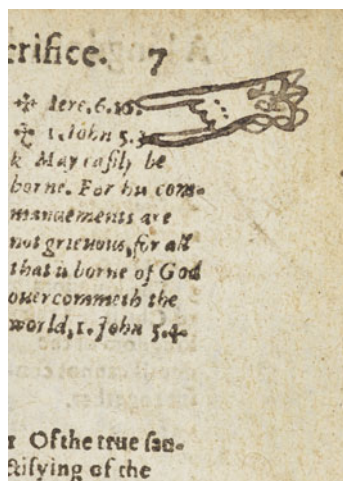 crifice. 7
✣ Iere.6.16.
✣ 1. Iohn 5.3
k May easily be
borne. For his com-
mandements are
not grieuous, for all
that is borne of God
ouercommeth the
world, 1. John 5.4.
1 Of the true san-
ctifying of the